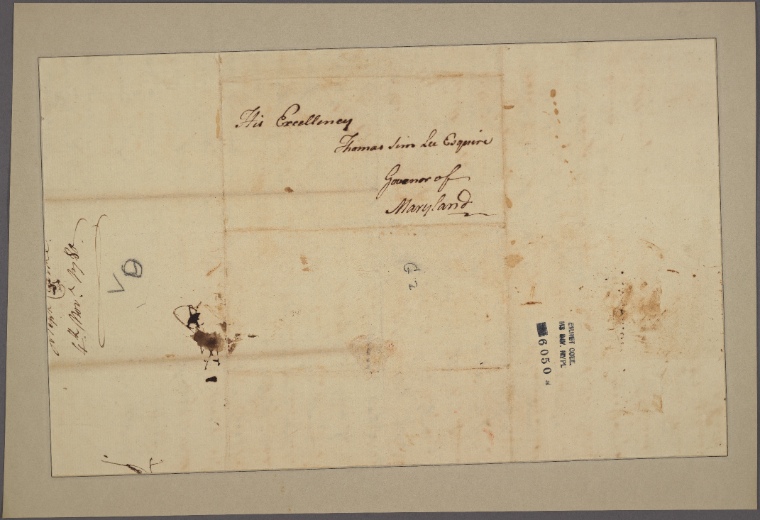 His Excellency
Thomas Sim Lee Esquire
Governor of
Maryland
4th Novr.
G 2
EMMET COLL.
6050